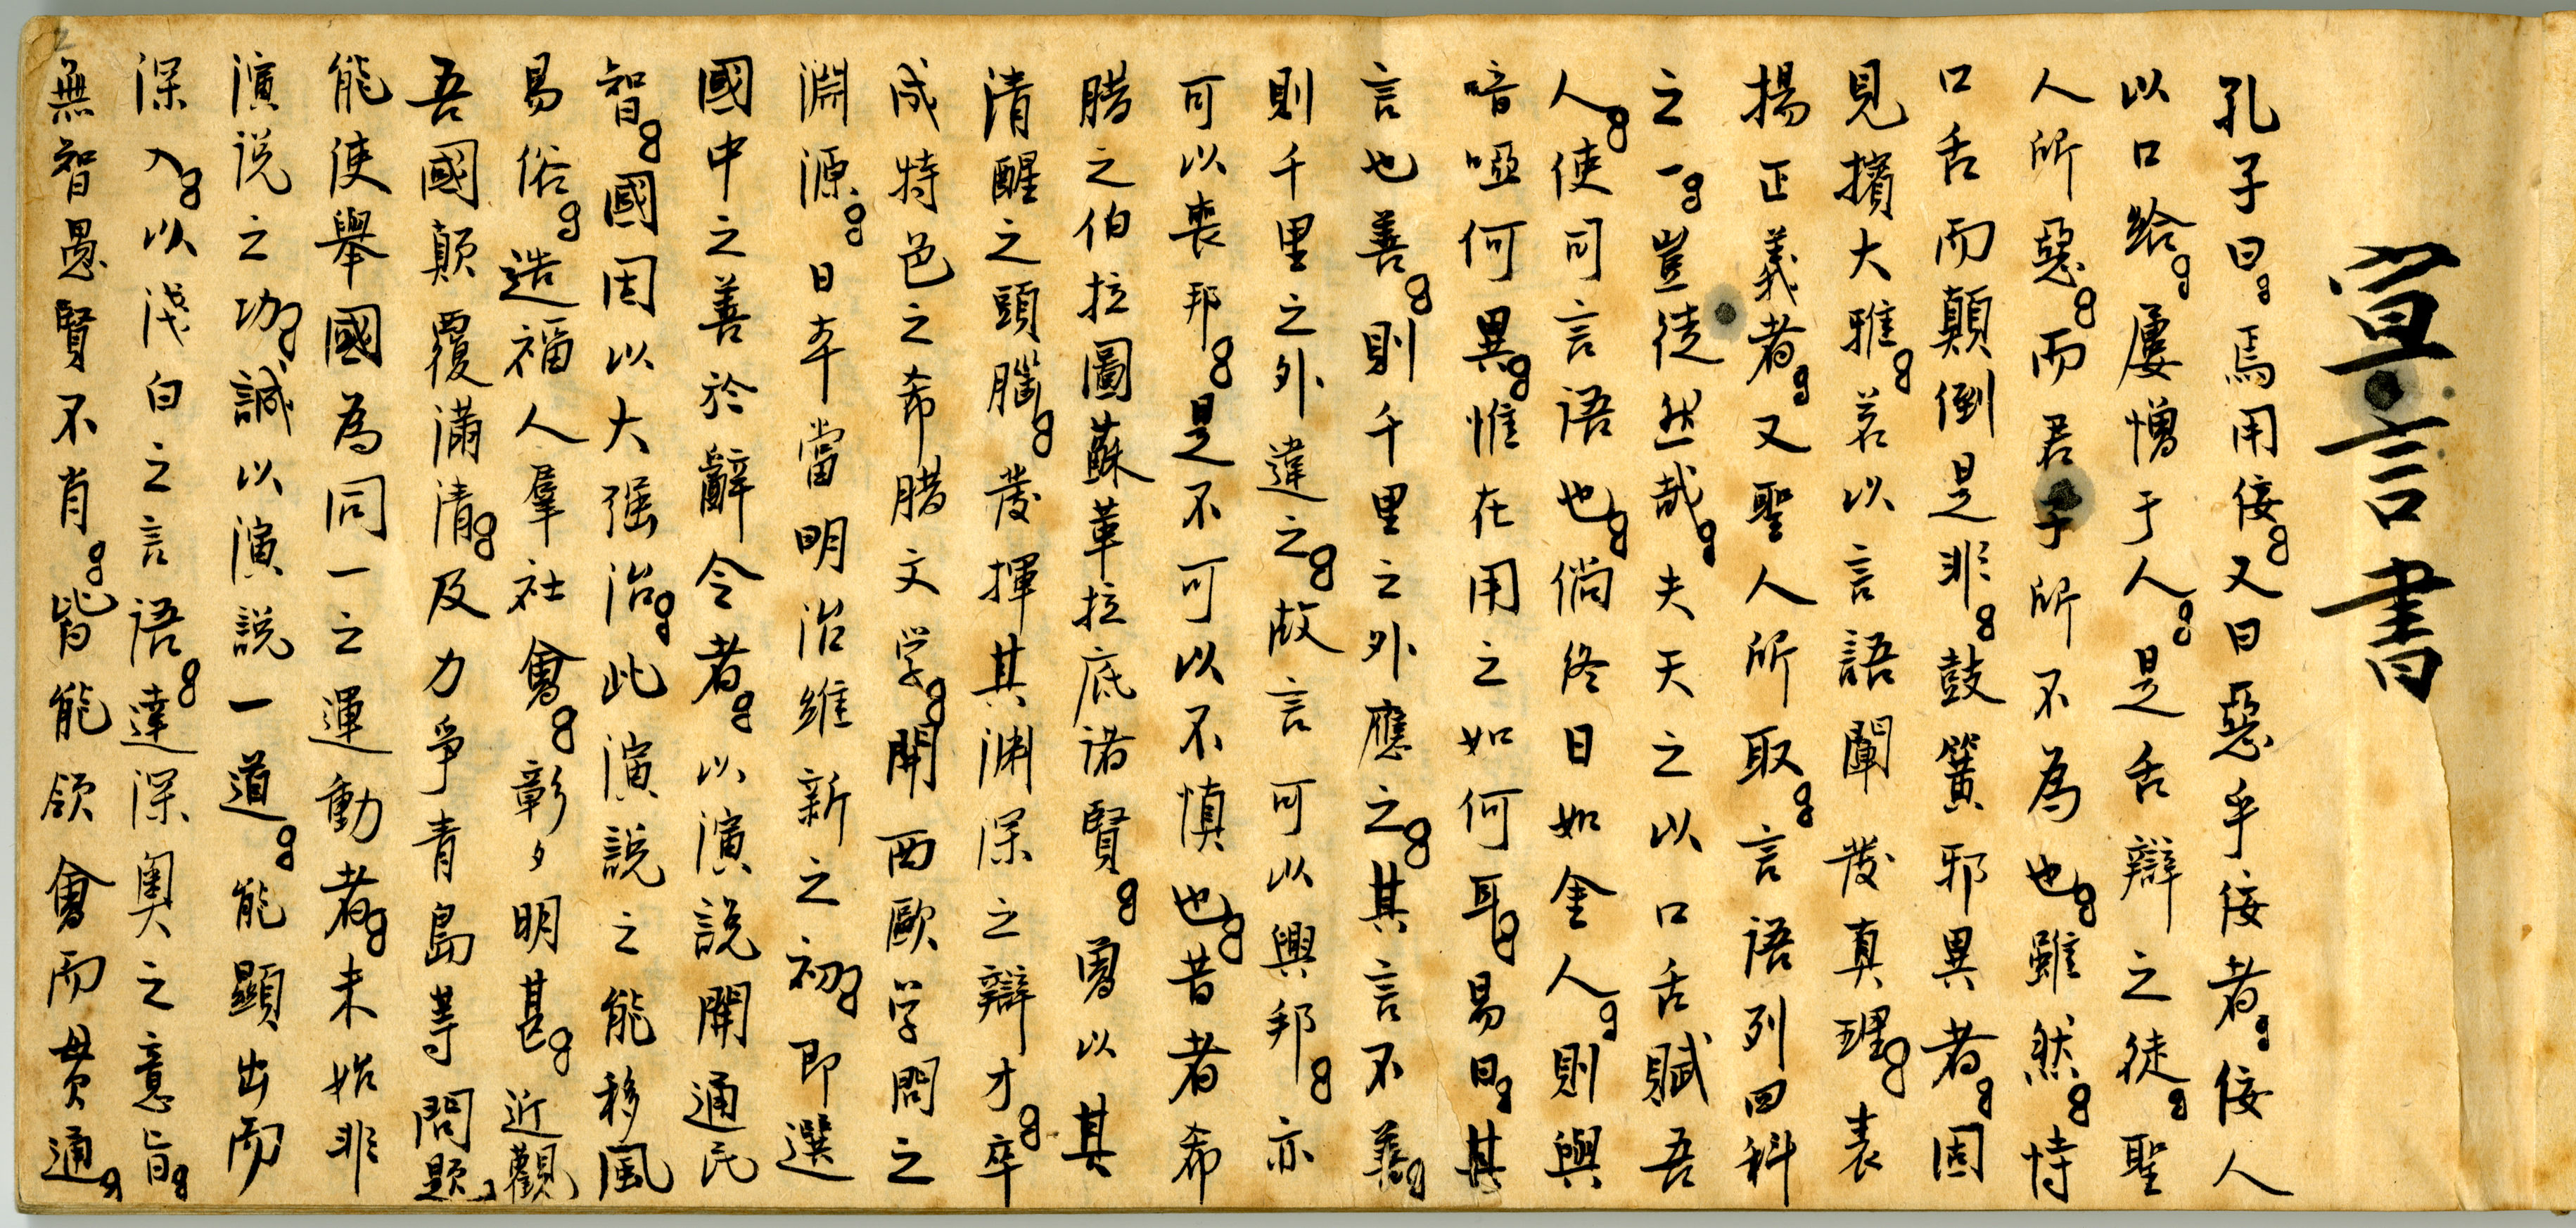 宣言書
孔子曰。焉用佞。又曰惡乎佞者。佞人
以口給。屢憎于人。是舌辯之徒。聖
人所惡。而君子所不為也。雖然。恃
口舌而顛倒是非。鼓簧邪異者。固
見擯大雅。若以言語闡發真理。表
揚正義者。又聖人所取。言語列四科
之一。豈徒然哉。夫天之以口舌賦吾
人。使可言語也。倘終日如金人。則與
喑啞何異。惟在用之如何耳。易曰。其
言也善。則千里之外應之。其言不善。
則千里之外違之。故言可以興邦。亦
可以喪邦。是不可以不慎也。昔者希
腊之伯拉圖蘇革拉底諸賢。曾以其
清醒之頭腦。發揮其淵深之辯才。卒
成特色之希腊文学。開西歐学問之
淵源。日本當明治維新之初。即選
國中之善於辭令者。以演說開通民
智。國因以大强治。此演說之能移風
易俗。造福人羣社會。彰々明甚。近觀
吾國顛覆滿清。及力爭青島等問題、
能使舉國為同一之運動者。未始非
演说之功。誠以演說一道。能顯出而
深入。以淺白之言語。達深奧之意旨。
無智愚賢不肖。皆能領會而貫通。